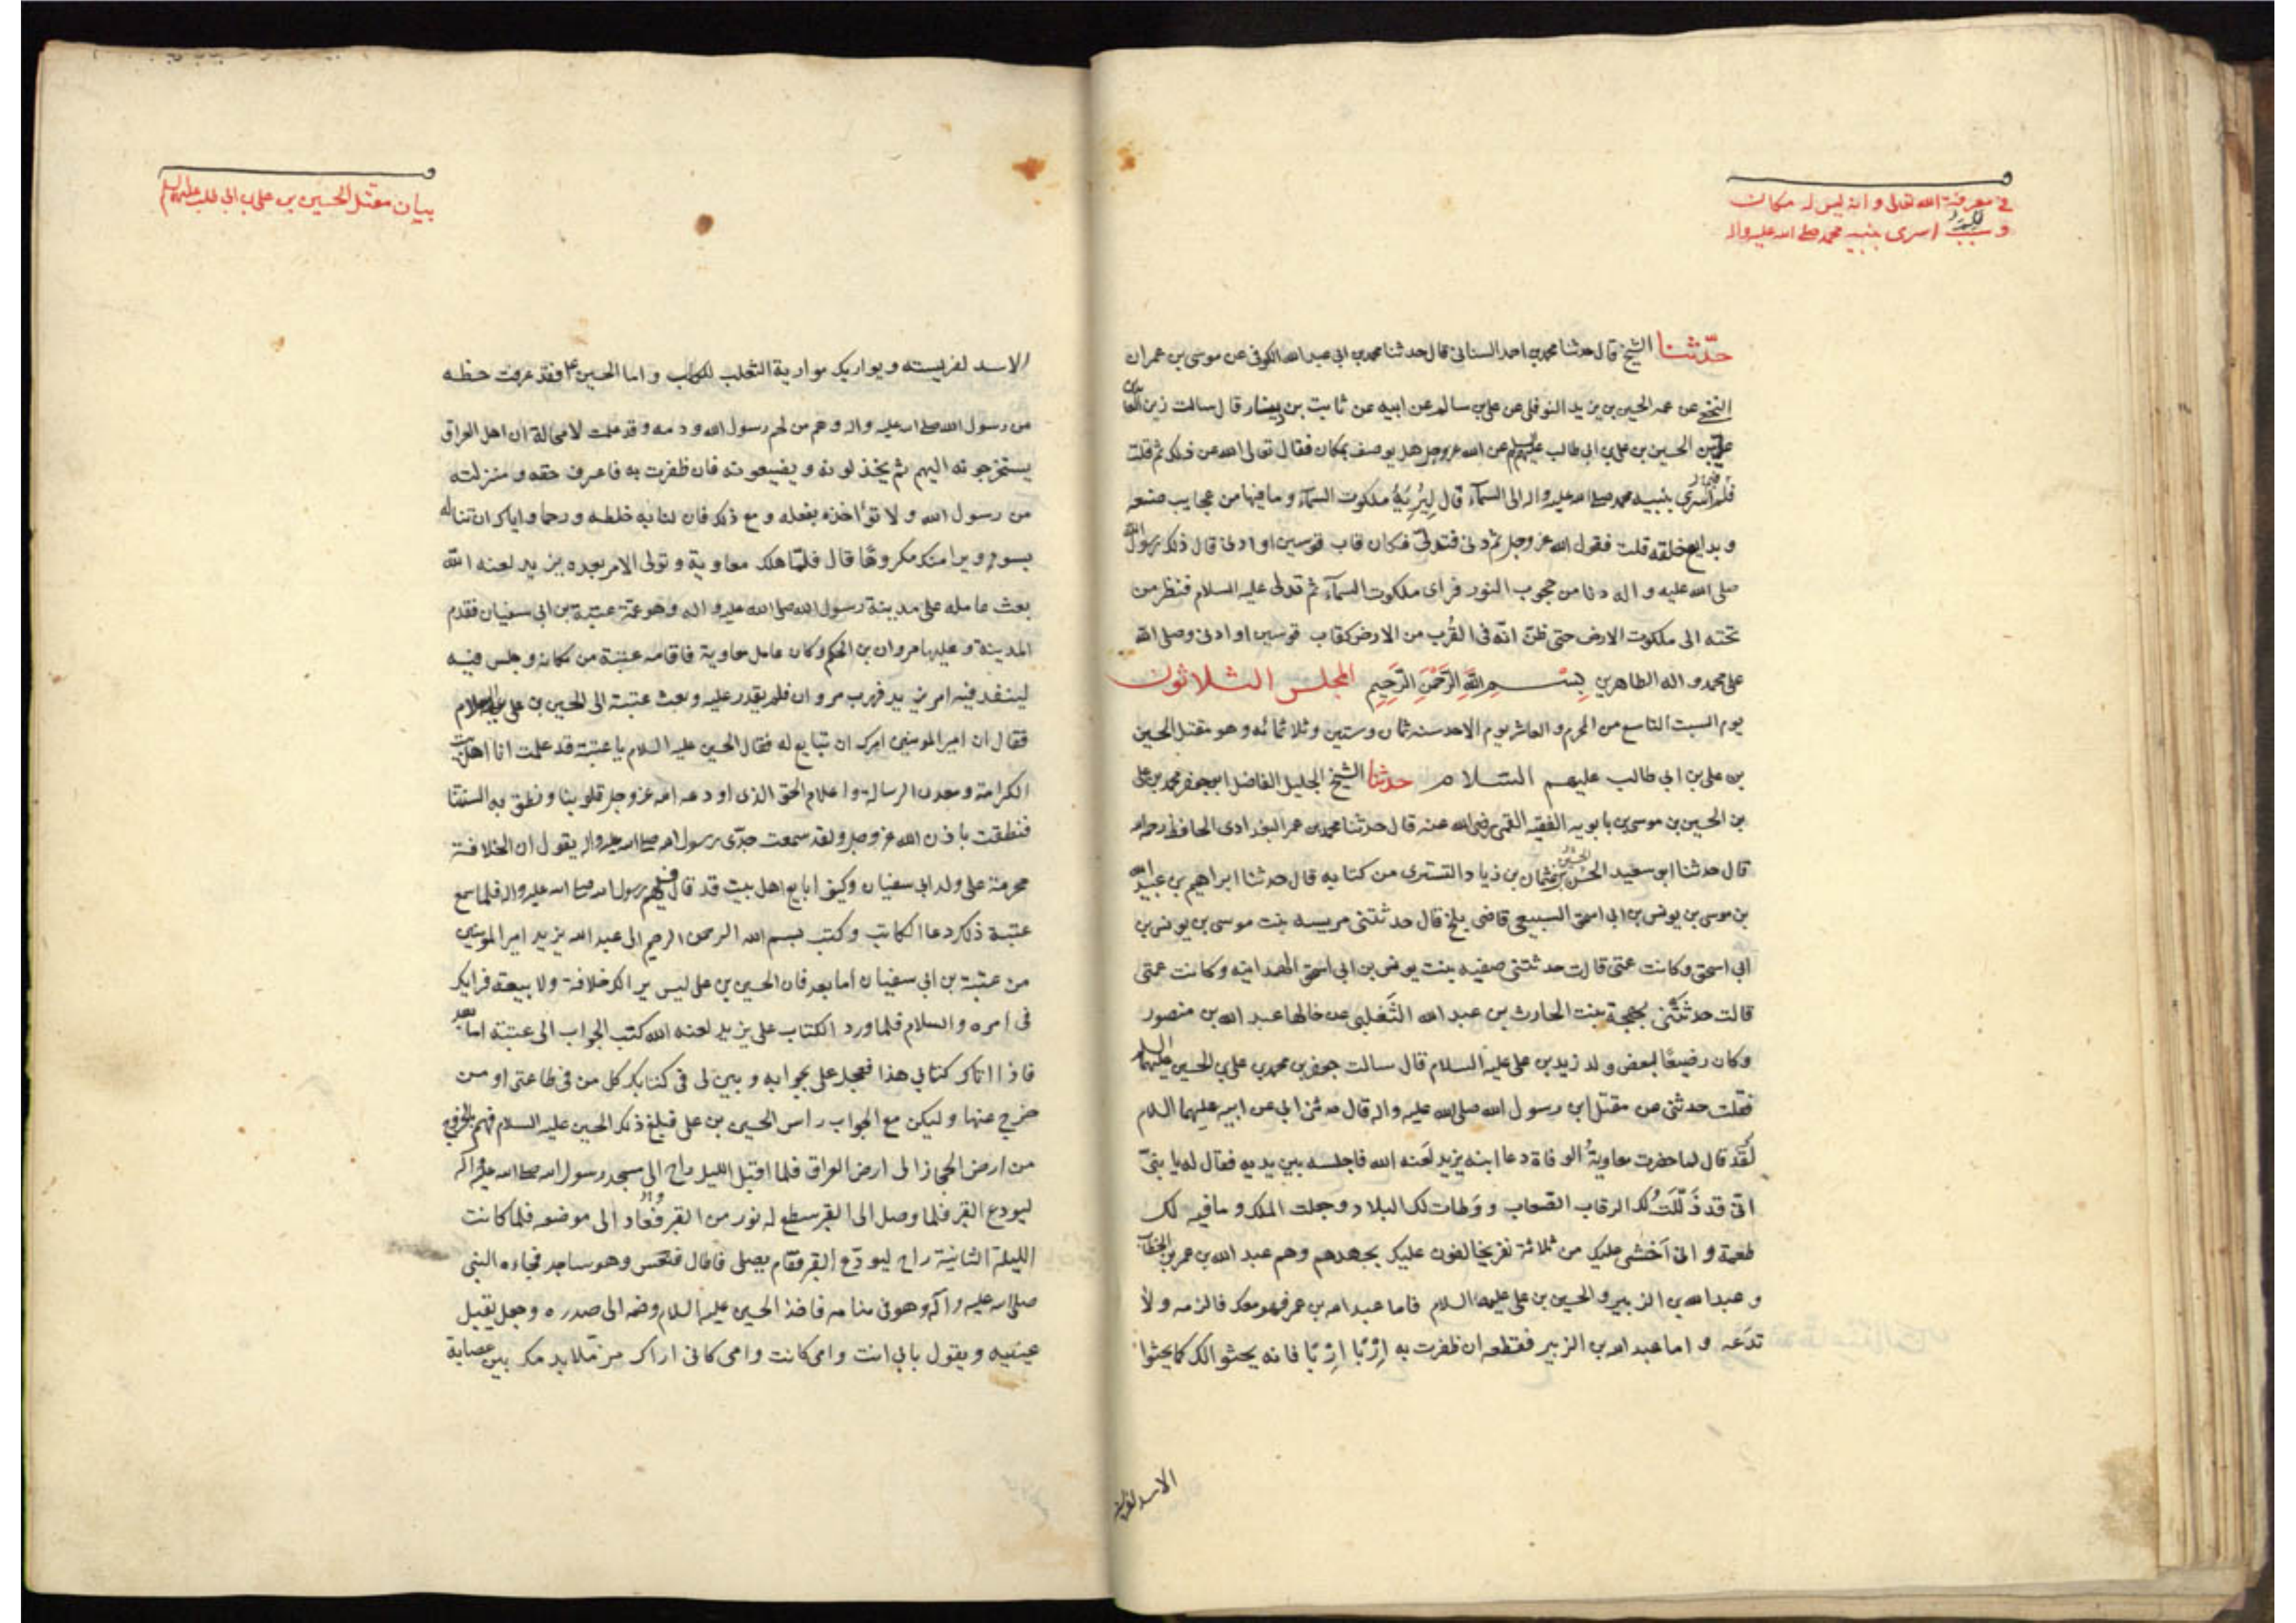 في معرفة الله تعالى و انه ليس له مكان
و سبب اسرى بنبيه محمد صلى الله عليه واله
حدّثنا الشيخ قال حدثنا محمد بن احمد السنانى قال حدثنا محمد بن ابى عبد الله الكوفى عن موسى بن عمران
النخعى عن عمه الحسين بن يزيد النوفلى عن على بن سالم عن ابيه عن ثابت بن دينار قال سالت زين العابدين
على بن الحسين بن على بن ابى طالب عليهم السلم عن الله عزوجل هل يوصف بمكان فقال تعالى الله عن ذلك ثم قلت
فلم اسرى بنبيه محمد صلى الله عليه واله الى السمآء قال لِيُرِيَهُ ملكوت السمآء و ما فيها من عجايب صنعه
و بدايع خلقه قلت فقول الله عز وجل ثم دنى فتدلىّ فكان قاب قوسين او ادنى قال ذلك رسول الله
صلى الله عليه و اله دنا من حجوب النور فراى ملكوت السمآء ثم تدلى عليه السلام فنظر من
تحته الى ملكوت الارض حتى ظنّ انّه فى القُرب من الارض كقاب قوسين او ادنى وصلى الله
على محمد و اله الطاهرين بِسْمِ اللَّهِ الرَّحْمَنِ الرَّحِيمِ المجلس الثلاثون
يوم السبت التاسع من المحرم و العاشر يوم الاحد سنه ثمان وستين وثلاثمائه و هو مقتل الحسين
بن على بن ابى طالب عليهم السّلام حدثنا الشيخ الجليل الفاضل ابو جعفر محمد بن على
بن الحسين بن موسى بن بابويه الفقيه القمى رضى الله عنه قال حدثنا محمد بن عمر البغدادى الحافظ رحمه الله
قال حدثنا ابو سعيد الحسن بن عثمان بن زياد التسترى من كتابه قال حدثنا ابراهيم بن عبيد الله
بن موسى بن يونس بن ابى اسحق السبيعى قاضى بلخ قال حدثتنى مريسه بنت موسى بن يونس بن
ابى اسحق وكانت عمتى قالت حدثتنى صفيه بنت يونس بن ابى اسحق الهمدانيه وكانت عمتى
قالت حدثتنى بهجة بنت الحارث بن عبد الله التَغلبى عن خالها عبد الله بن منصور
وكان رضيعًا لبعض ولد زيد بن على عليه السلام قال سالت جعفر بن محمد بن على بن الحسين عليهما السلم
فقلت حدثنى عن مقتل ابن رسول الله صلى الله عليه واله قال حدثنى ابى عن ابيه عليهما السلام
لَقَد قال لما حضرت معاويةُ الوفاة دعا ابنه يزيد لَعنه الله فاجلسه بين يديه فقال له يا بنىّ
انى قد ذَلّلَتُ لك الرقاب الصعاب و وَطات لك البلاد وجعلت الملك و ما فيه لك
طعمة و انى اَخشى عليك من ثلاثة نفر يخالفون عليك بجهدهم وهم عبد الله بن عمر بن الخطاب
و عبد الله بن الزبير و الحسين بن على عليهما السلام فاما عبد الله بن عمر فهو معك فالزمه و لا
تدَعه و اما عبد الله بن الزبير فقطعه ان ظفرت به اِرْبًا اِرْبًا فانه يحثو الك كما يحثوا
الاسد لفريسته
بيان مقتل الحسين بن على بن ابى طالب عليهم السلم
الاسد لفريسته ويواريك مواربة الثعلب للكلب و اما الحسين ع فقد عرفت حظه
من رسول الله صلى الله عليه واله و هو من لحم رسول الله و دمه و قد علمت لا محالة ان اهل العراق
يستخرجونه اليهم ثم يخذلونه و يضيعونه فان ظفرت به فاعرف حقه و منزلته
من رسول الله و لا تؤاخذه بفعله و مع ذلك فان لنا به خلطه و رحما و اياك ان تناله
بسوء و يرا منك مكروهًا قال فلمّا هلك معاوية و تولى الامر بعده يزيد لعنه الله
بعث عامله على مدينة رسول الله صلى الله عليه و اله و هو عمّه عتبة بن ابى سفيان فقدم
المدينة و عليها مروان بن الحكم و كان عامل معاوية فاقامه عتبة من مكانه و جلس فيه
لينفذ فيه امر يزيد فهرب مروان فلم يقدر عليه و بعث عتبة الى الحسين بن على عليه السلام
فقال ان امير المومنين امرك ان تبايع له فقال الحسين عليه السلام يا عتبة قد علمت انا اهل بيت
الكرامة و معدن الرسالة و اعلام الحق الذى اودعه الله عزوجل قلوبنا و نطق به السنتنا
فنطقت باذن الله عزوجل و لقد سمعت جدّى رسول الله صلى الله عليه واله يقول ان الخلافة
محرمة على ولد ابى سفيان وكيف ابايع اهل بيت قد قال فيهم رسول الله صلى الله عليه واله فلما سمع
عتبة ذلك دعا الكاتب و كتب بسم الله الرحمن الرحيم الى عبد الله يزيد امير المومنين
من عتبة بن ابى سفيان اما بعد فان الحسين بن على ليس يرا لك خلافة ولا بيعة فرايك
فى امره و السلام فلما ورد الكتاب على يزيد لعنه الله كتب الجواب الى عتبة اما بعد
فاذا اتاك كتابى هذا فعجل على بجوابه و بين لى فى كتابك كل من فى طاعتى او من
خرج عنها و ليكن مع الجواب راس الحسين بن على فبلغ ذلك الحسين عليه السلام فهم بالخروج
من ارض الحجاز الى ارض العراق فلما اقبل الليل راح الى مسجد رسول الله صلى الله عليه واله
ليودع القبر فلما وصل الى القبر سطع له نور من القبر فعاد الى موضعه فلما كانت
الليلة الثانية راح ليودّع القبر فقام يصلى فاطال فنعس وهو ساجد فجاءه النبى
صلى الله عليه و آله وهو فى منامه فاخذ الحسين عليه السلام وضمه الى صدره و جعل يقبل
عينيه و يقول بابى انت و امى كانت و امى كانى اراك مرملا بدمك بين عصابة